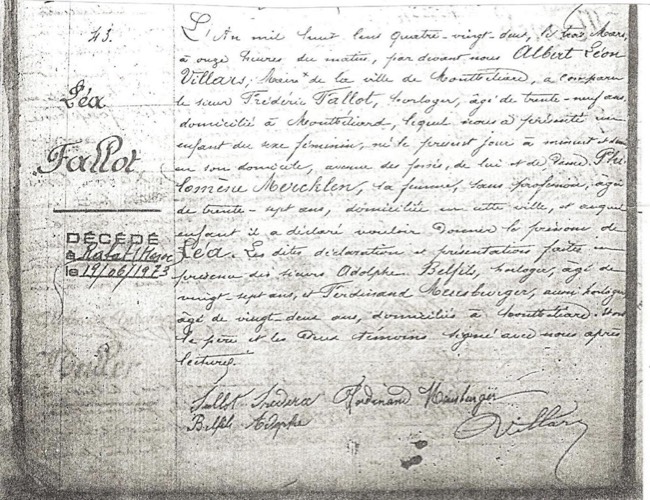 43.
Léa
Fallot
DÉCÉDÉ
à Rabat (Maroc
le 19/06/1973
L'An mil huit cent quatre-vingt-deux, le trois Mars,
à onze heures du matin, par devant nous Albert Léon
Villars, Maire de la ville de Montbéliard, a comparu
le sieur Frédéric Fallot, horloger, âgé de trente-neuf ans
domicilié à Montbéliard, lequel nous a présenté un
enfant du sexe féminin, né le présent jour à minuit et
en son domicile, avenue des fossés, de lui et de dame Phi
lomène Mercklen, sa femme, sans profession, âgée
de trente-sept ans, domiciliée en cette ville, et auquel
enfant il a déclaré vouloir donner le prénom de
Léa. Les dites déclaration et présentations faites en
présence des sieurs Adolphe Belfils, horloger, âgé de
vingt-sept ans, et Ferdinand Meusburger, aussi horloger
âgé de vingt-deux ans, domiciliés à Montbéliard. Et ont
le père et les deux témoins signé avec nous après
lecture.
Fallot Frédéric Ferdinand Meusburger
Belfils Adophe
Villars